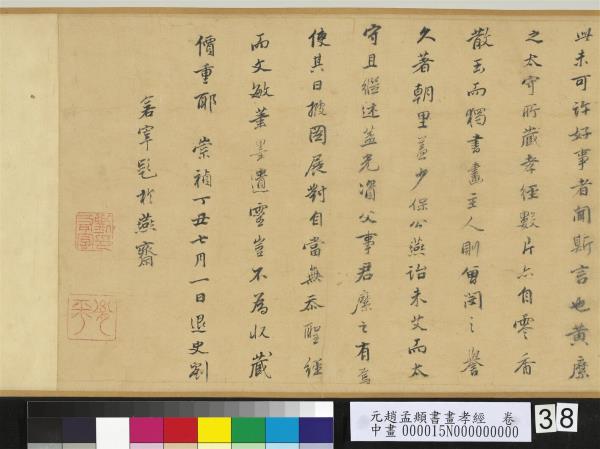 此未可許好事者聞斯言也黃麋
之太守所藏孝經數片六自零香
散玉而獨書畫主人則曾閔之譽
久著朝里蓋少保公燕詒未艾而太
守且繼述益光資公事君糜之有焉
使其日披圖展對自當無忝聖經
而文敏舊墨遺靈豈不為收藏
價重耶 崇禎丁丑七月一日退史劉
若宰題於燕齋
元趙孟頫書畫孝經 卷
中畫000015N000000000
38